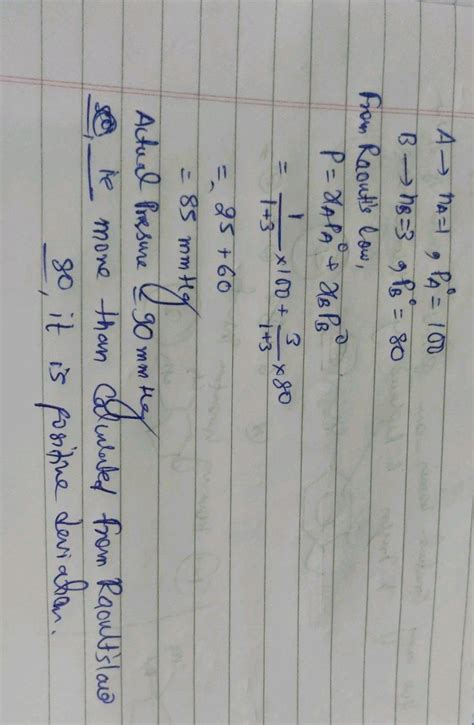 A → nA=1 , PA° = 100
B → nB=3 , PB° = 80
From Raoult's law,
P = xAPA° + xBPB°
= 1/1+3 × 100 + 3/1+3 × 80
= 25 + 60
= 85 mmHg
Actual Pressure = 90 mmHg
is more than Calculated from Raoult's law
so, it is positive deviation.